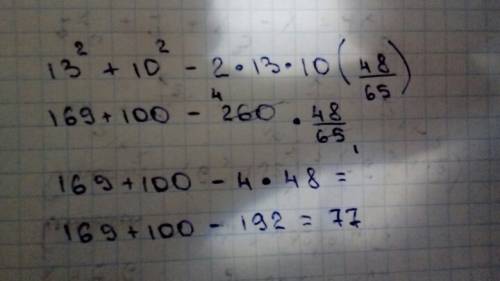 13² + 10² - 2 • 13 • 10 (48/65)
169 + 100 - ⁴260 • 48/65₁
169 + 100 - 4 • 48 =
169 + 100 - 192 = 77